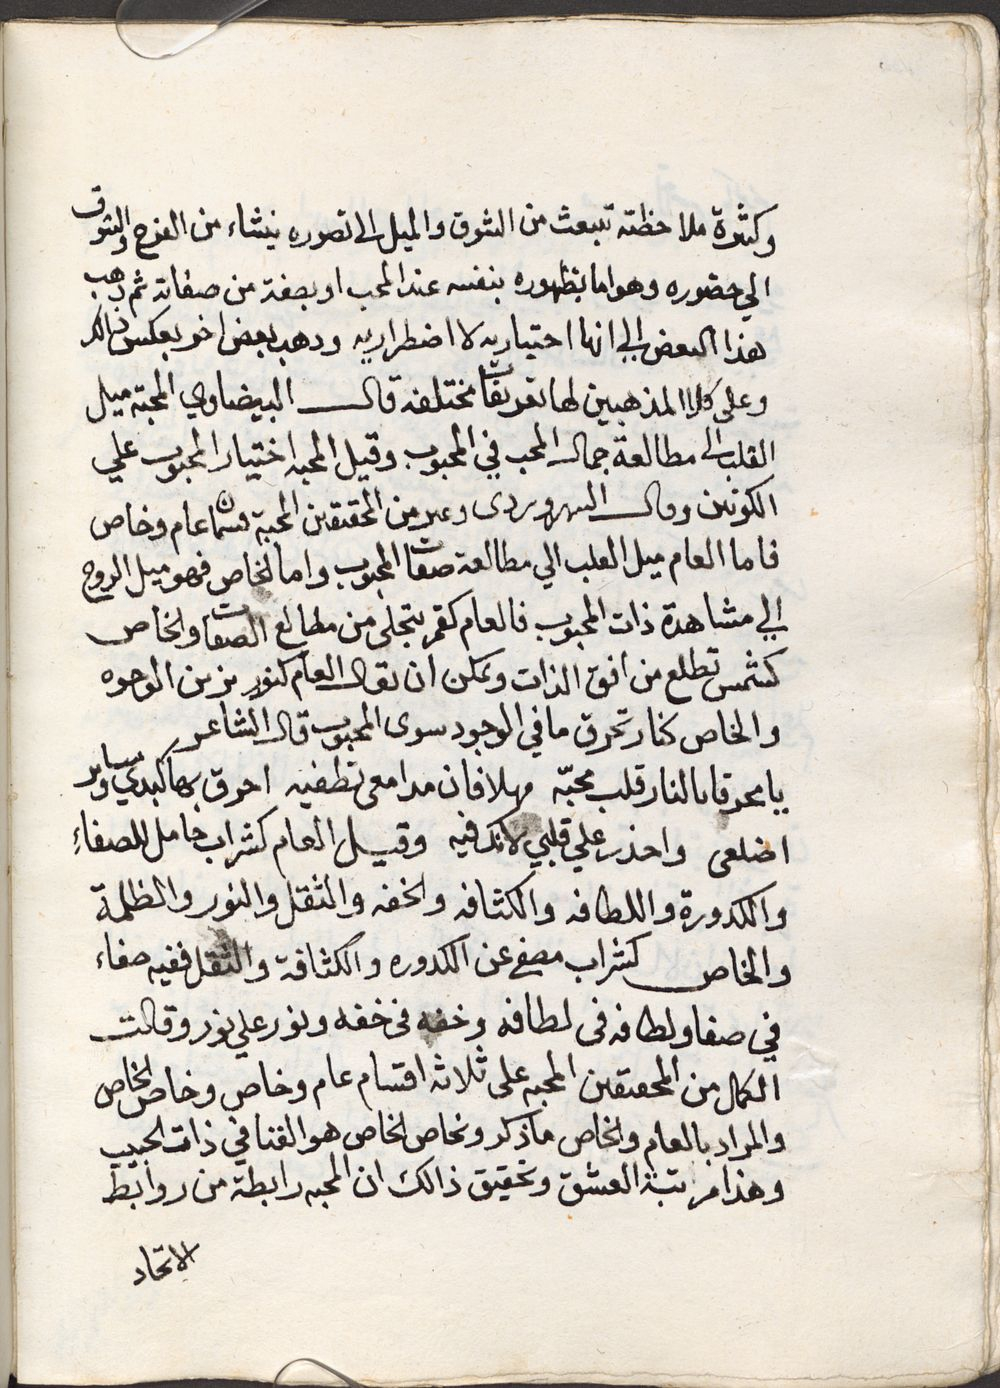 وكثرة ملاحظته تنبعث من الشوق والميل الى تصوره ينشاء من الفرح والشوق
الي حضوره وهو اما بظهوره بنفسه عند المحب او بصفة من صفاته ثم ذهب
هذا البعض الي انها اختياريه لا اضطراريه وذهب بعض اخر بعكس ذالك
وعلى كلا المذهبين لها تعريفات مختلفه قال البيضاوي المحبة ميل
القلب الى مطالعة جمال المحب في المحبوب وقيل المحبه اختيار المحبوب علي
الكونين وقال السهروردى وغيره من المحققين المحبة قسمان عام وخاص
فاما العام ميل القلب الي مطالعة صفات المحبوب واما الخاص فهو ميل الروح
الي مشاهدة ذات المحبوب فالعام كقمر يتجلى من مطالع الصفات والخاص
كشمس تطلع من افق الذات ويمكن ان يقال العام كنور يزين الوجوه
والخاص كنار تحرق ما في الوجود سوى المحبوب قال الشاعر
يا محرقا بالنار قلب محبّه مهلا فان مدامعى تطفيه احرق بها كبدي وساير
اضلعى واحذر علي قلبي لانك فيه وقيل العام كشراب حامل للصفاء
والكدورة واللطافه والكثافه والخفه والثقل والنور والظلمة
والخاص كشراب مصفي عن الكدوره والكثافة والثقل ففيه صفاء
في صفا ولطافه فى لطافه وخفه فى خفه ونور علي نور وقالت
الكمال من المحققين المحبه على ثلاثه اقسام عام وخاص وخاص الخاص
والمراد بالعام والخاص ما ذكر وبخاص الخاص هو الفنا في ذات الحبيب
وهذا مرتبة العشق وتحقيق ذالك ان المحبه رابطة من روابط
الاتحاد